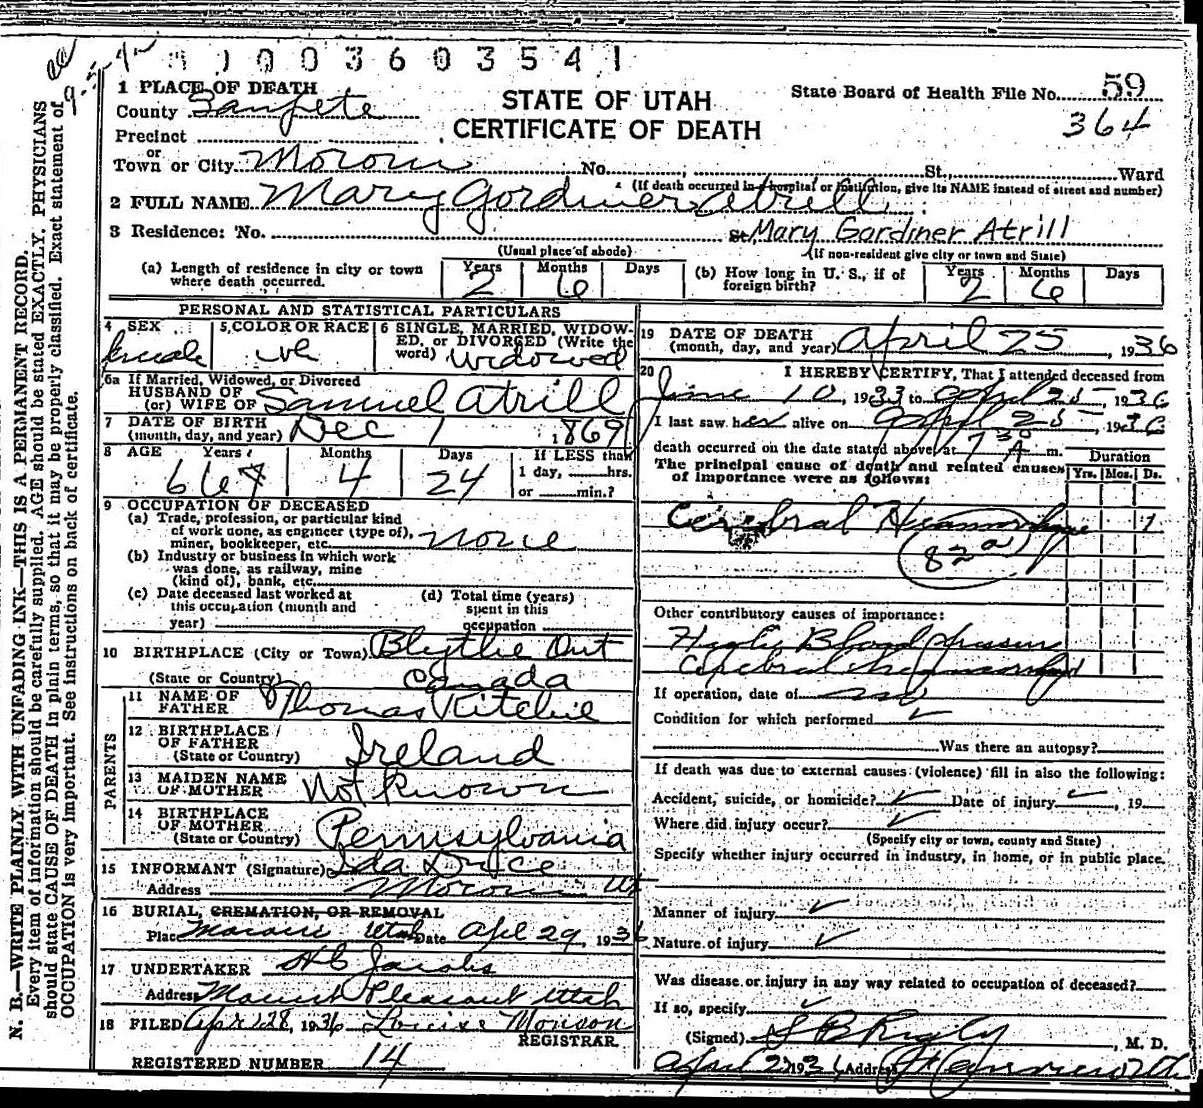 9-5-4
1003603541
1 PLACE OF DEATH
County Sanpete
STATE OF UTAH
CERTIFICATE OF DEATH
State Board of Health File No. 59
364
Precinct
or
Town or City Moroni No. St., Ward
(If death occurred in a hospital or institution, give its NAME instead of street and number)
2 FULL NAME Mary Gordiner Atrill
3 Residence: No. St. Mary Gardiner Atrill
(Usual place of abode) (If non-resident give city or town and State)
(a) Length of residence in city or town where death occurred. Years 2 Months 6 Days
(b) How long in U. S., if of foreign birth? Years 2 Months 6 Days
PERSONAL AND STATISTICAL PARTICULARS
4 SEX female
5 COLOR OR RACE
6 SINGLE, MARRIED, WIDOWED, or DIVORCED (Write the word) Widowed
6a If Married, Widowed, or Divorced
HUSBAND OF
(or) WIFE OF Samuel Atrill
7 DATE OF BIRTH
(month, day, and year) Dec 1 1869
8 AGE Years 66 Months 4 Days 24 If LESS than
1 day, hrs.
or min.?
9 OCCUPATION OF DECEASED
(a) Trade, profession, or particular kind
of work done, as engineer (type of),
miner, bookkeeper, etc. none
(b) Industry or business in which work
was done, as railway, mine
(kind of), bank, etc.
(c) Date deceased last worked at
this occupation (month and
year)
(d) Total time (years)
spent in this
occupation
10 BIRTHPLACE (City or Town) Blythe Ont
(State or Country) Canada
PARENTS
11 NAME OF
FATHER Thomas Ritchie
12 BIRTHPLACE
OF FATHER
(State or Country) Ireland
13 MAIDEN NAME
OF MOTHER Not Known
14 BIRTHPLACE
OF MOTHER
(State or Country) Pennsylvania
15 INFORMANT (Signature) Ida
Address Moroni Ut
16 BURIAL, CREMATION, OR REMOVAL
Place Moroni Utah Date Apr 29, 1936
17 UNDERTAKER H C Jacobs
Address Mount Pleasant Utah
18 FILED Apr 28, 1936 Louise Monson
REGISTRAR
REGISTERED NUMBER 14
19 DATE OF DEATH
(month, day, and year) April 25, 1936
20 I HEREBY CERTIFY, That I attended deceased from
June 10, 1933 to April 25, 1936
I last saw her alive on April 25, 1936
death occurred on the date stated above, at 7 30 A m.
The principal cause of death and related causes
of importance were as follows:
Duration
Yrs. Mos. Ds.
Cerebral Hemorrhage 1
82 a
Other contributory causes of importance:
High Blood Pressure
Cerebral Hemorrhage
If operation, date of
Condition for which performed
Was there an autopsy?
If death was due to external causes (violence) fill in also the following:
Accident, suicide, or homicide? Date of injury , 19
Where did injury occur?
(Specify city or town, county and State)
Specify whether injury occurred in industry, in home, or in public place.
Manner of injury
Nature of injury
Was disease or injury in any way related to occupation of deceased?
If so, specify
(Signed) , M. D.
April 1936 Address
N. B.—WRITE PLAINLY, WITH UNFADING INK—THIS IS A PERMANENT RECORD.
Every item of information should be carefully supplied. AGE should be stated EXACTLY. PHYSICIANS
should state CAUSE OF DEATH in plain terms, so that it may be properly classified. Exact statement of
OCCUPATION is very important. See instructions on back of certificate.